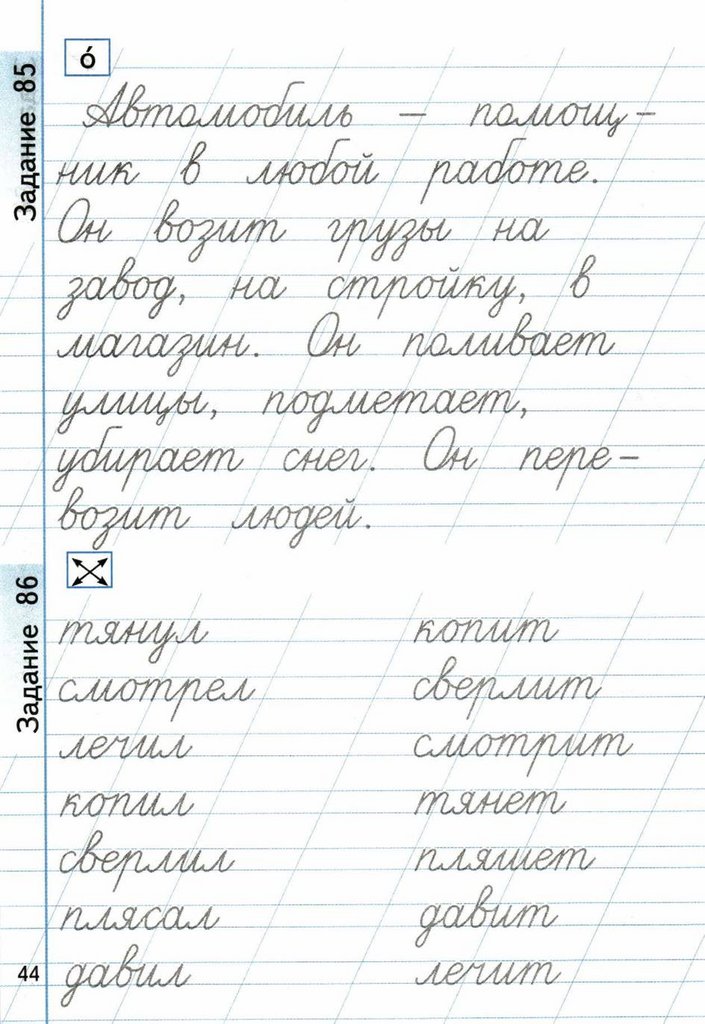 Задание 85
о́
Автомобиль – помощ-
ник в любой работе.
Он возит грузы на
завод, на стройку, в
магазин. Он поливает
улицы, подметает,
убирает снег. Он пере-
возит людей.
Задание 86
тянул копит
смотрел сверлит
лечил смотрит
копил тянет
сверлил пляшет
плясал давит
давил лечит
44